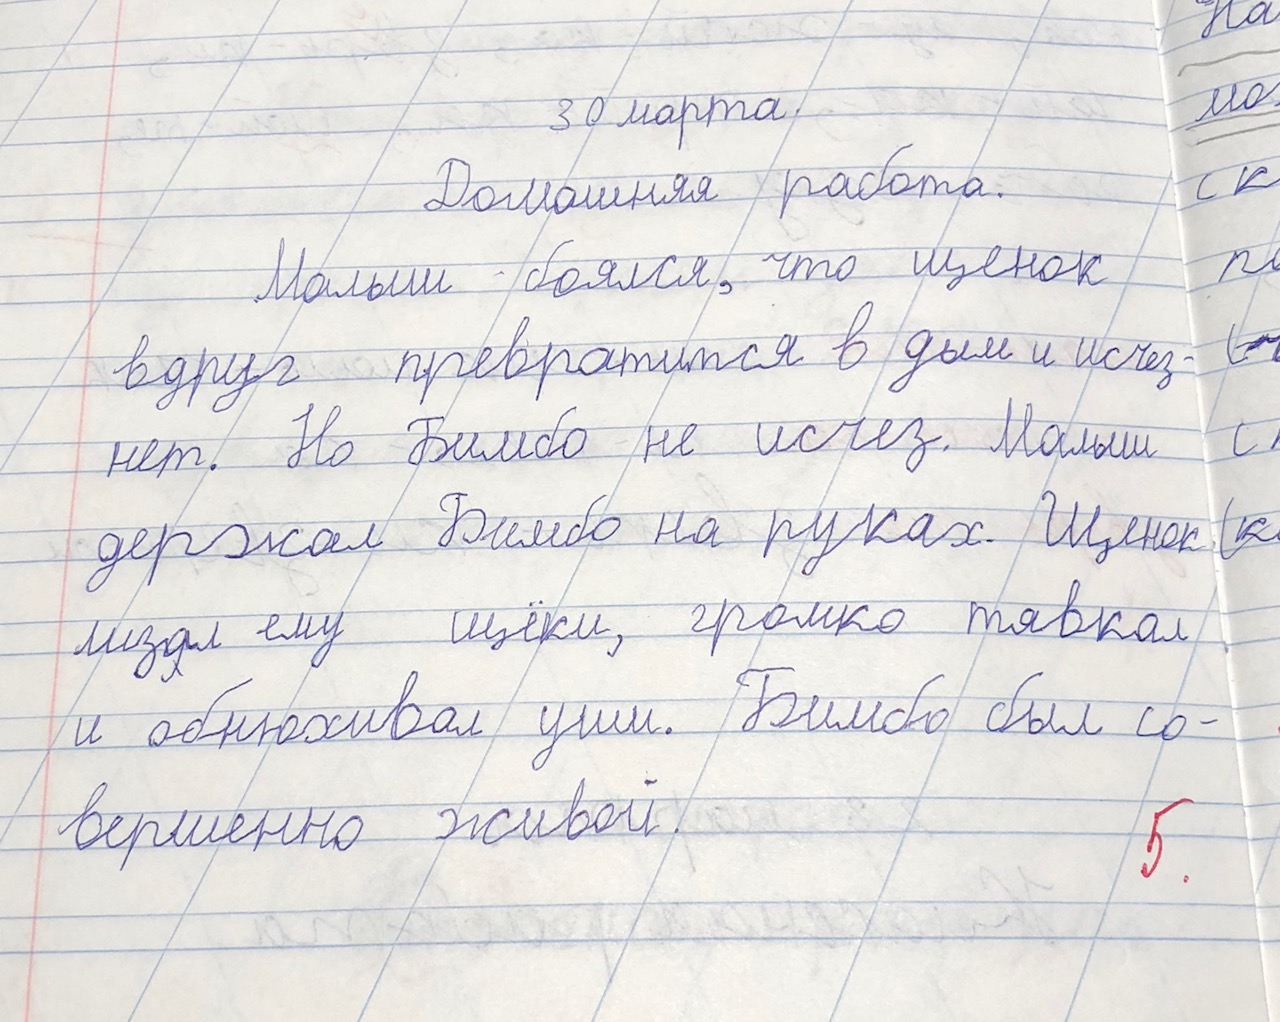 30 марта.
Домашняя работа.
Малыш боялся, что щенок
вдруг превратится в дым и исчез-
нет. Но Бимбо не исчез. Малыш
держал Бимбо на руках. Щенок
лизал ему щёки, громко тявкал
и обнюхивал уши. Бимбо был со-
вершенно живой.
5.